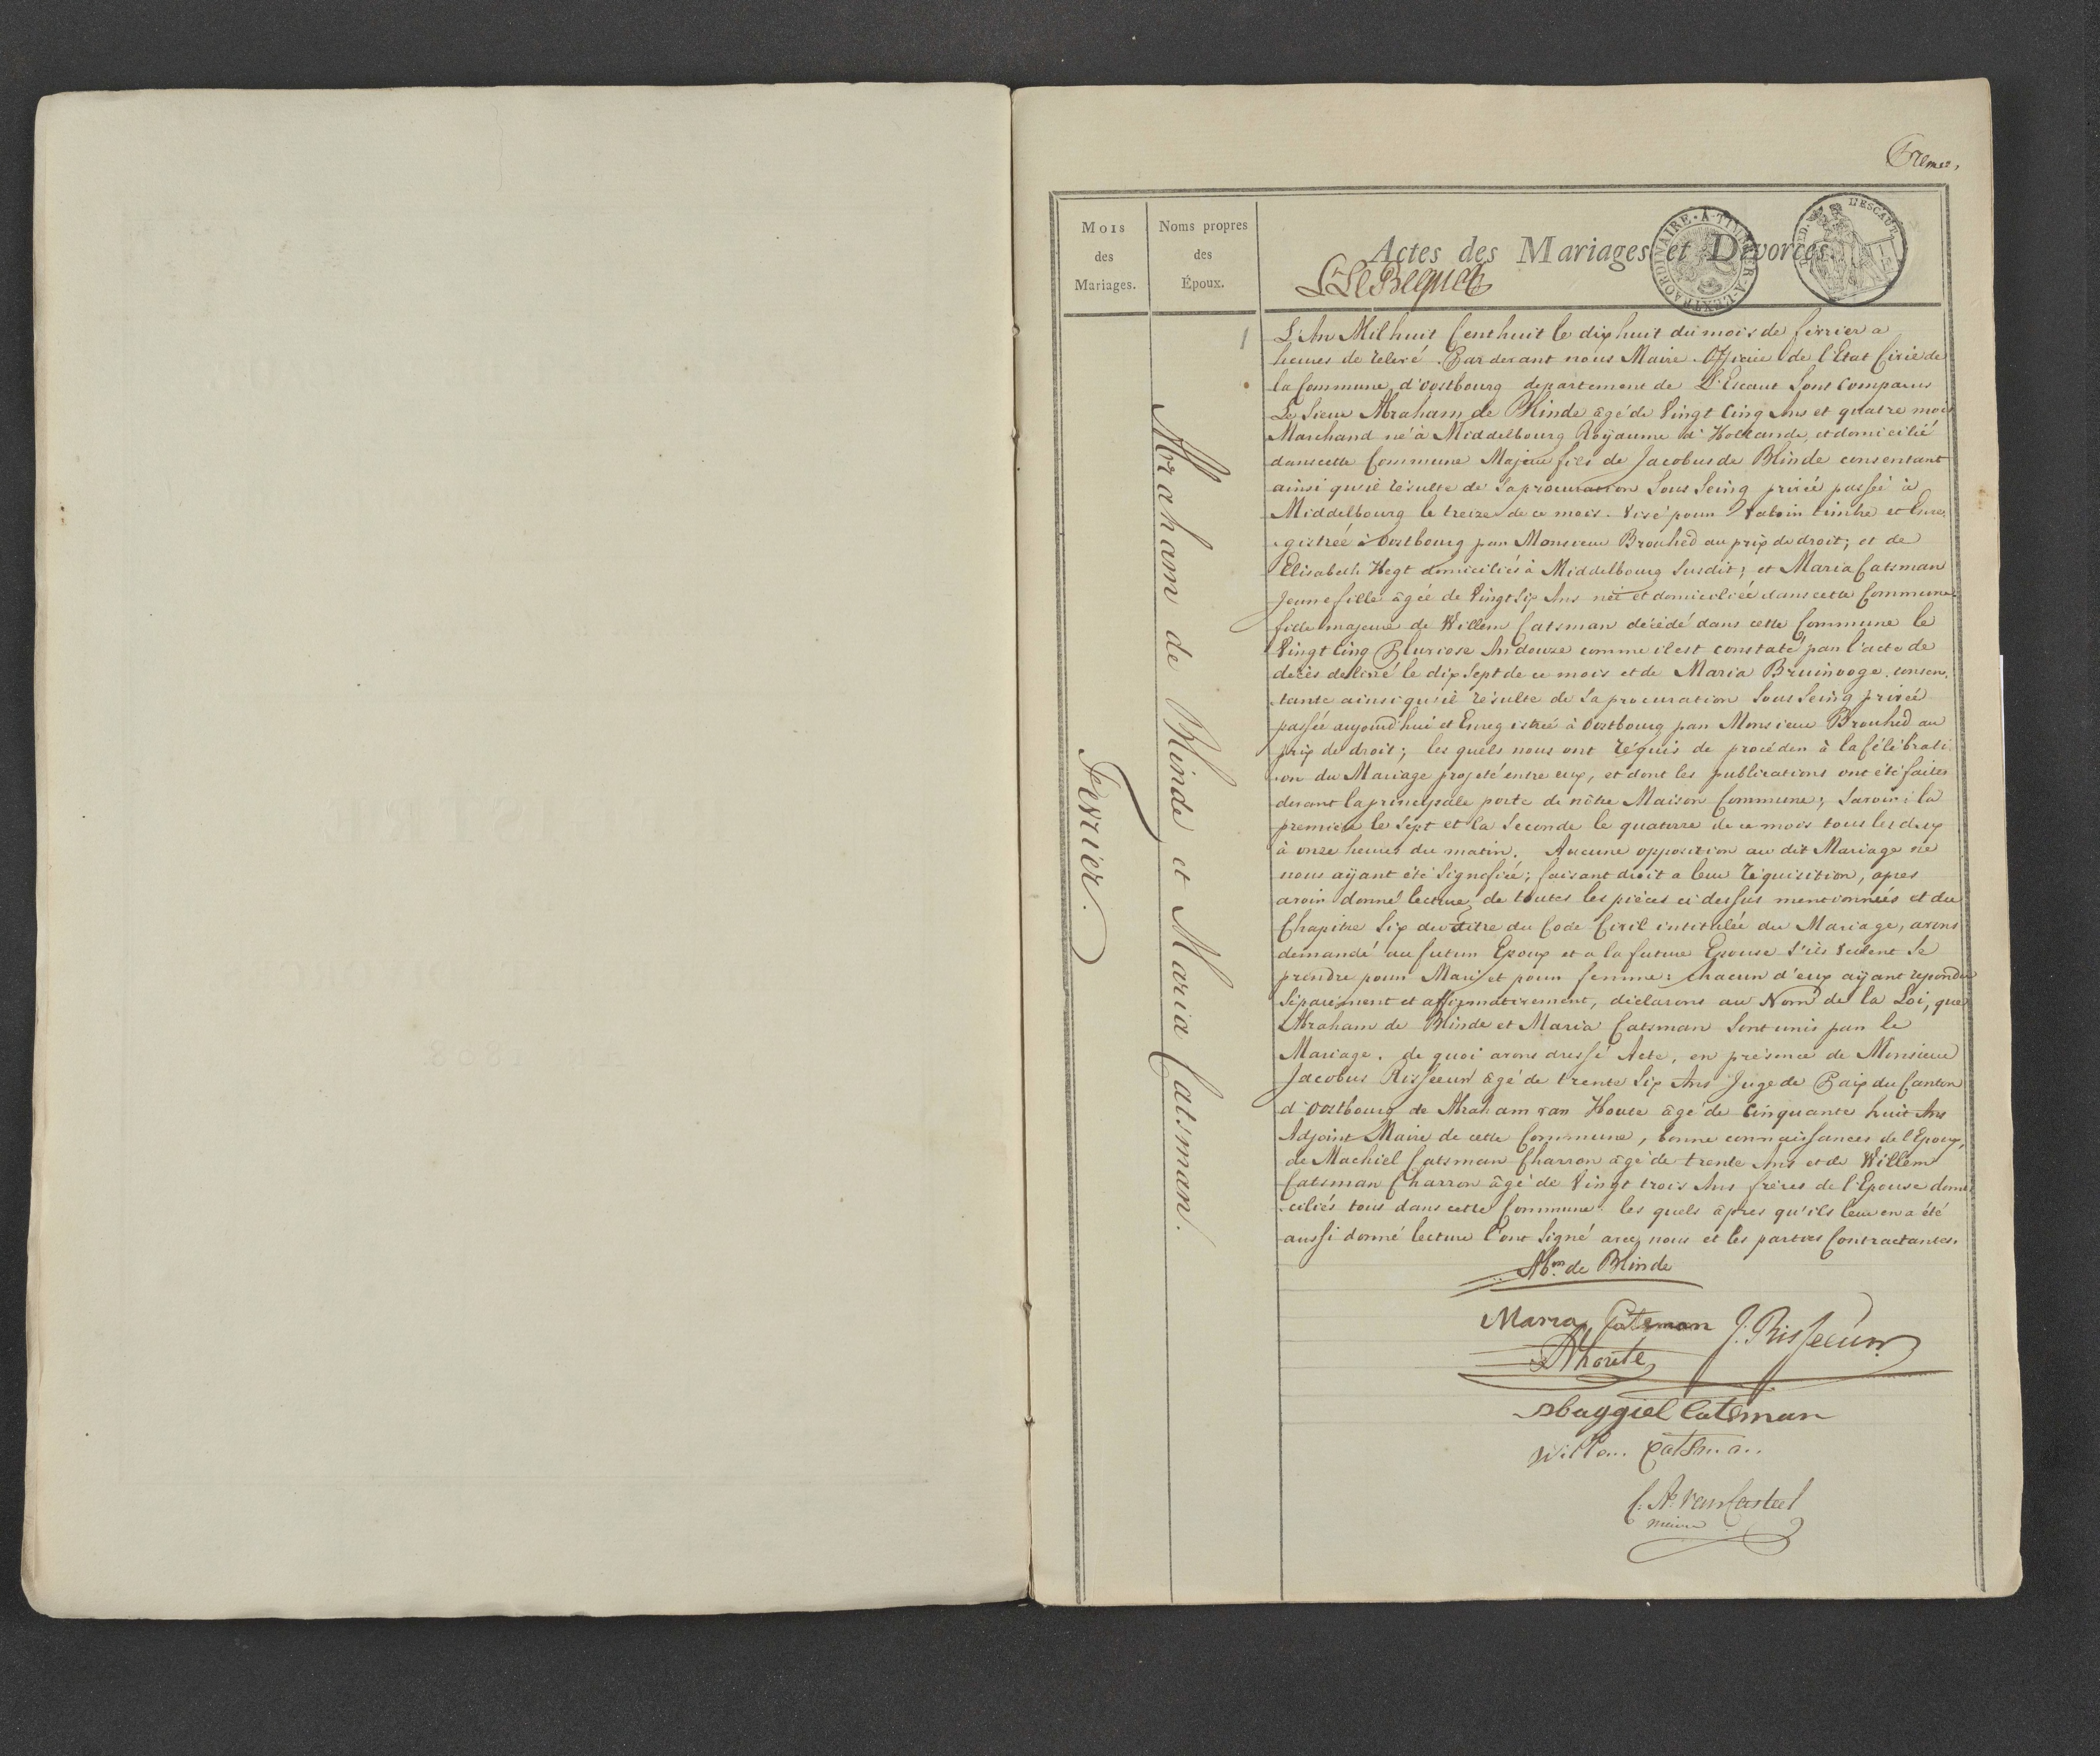 Mois
des
Mariages.
Noms propres
des
Époux.
Actes des Mariages et Divorces.
1
Fevrier.
Abraham de Blinde et Maria Catsman.
L'An Mil huit Cent huit le dix huit du mois de fevrier a
heures de relevé. Par devant nous Maire Officie de l'Etat Civie de
la Commune d'oostbourg departement de L'Escaut Sont Comparus
Le Sieur Abraham de Blinde âgé de Vingt Cinq Ans et quatre mois
Marchand né à Middelbourg Royaume d'Hollande, et domicilié
dans cette Commune Majeur fils de Jacobus de Blinde consentant
ainsi qu'il résulte de sa procuration Sous Seing privé passée à
Middelbourg le treize de ce mois. Visé pour Valoir timbre et Enre,
gistrée à Oostbourg par Monsieur Brouhed au prix de droit; et de
Elisabeth Hegt domiciliés à Middelbourg Susdit; et Maria Catsman
Jeune fille âgée de Vingt Six Ans née et domiciliée dans cette Commune
fille majeure de Willem Catsman décédé dans cette Commune le
Vingt Cinq Pluviose An douze comme il est constaté par l'acte de
decès delivré le dix Sept de ce mois et de Maria Bruinooge. consen,
tante ainsi qu'il résulte de Sa procuration Sous Seing privée
passée aujourd'hui et Enregistrée à Oostbourg par Monsieur Brouhed au
prix de droit; les quels nous ont réquis de procéder à la Célébrati
on du Mariage projeté entre eux, et dont les publications ont été faites
devant la principale porte de nôtre Maison Commune; Savoir: la
premiere le Sept et la Seconde le quatorze de ce mois tous les deux
à onze heures du matin. Aucune opposition au dit Mariage ne
nous aÿant été Signifiée; faisant droit a leur réquisition, apres
avoir donné lecture de toutes les pièces ci dessus mentionnées et du
Chapitre Six du titre du Code Civil intitulée du Mariage, avons
demandé au futur Epoux et a la future Epouse s'ils veulent Se
prendre pour Mari et pour femme: chacun d'eux aÿant repondu
Séparément et affirmativement, déclarons au Nom de la Loi, que
Abraham de Blinde et Maria Catsman Sont unis par le
Mariage. de quoi avons dressé Acte, en présence de Monsieur
Jacobus Risseeuw âgé de trente Six Ans Juge de Paix du Canton
d'Oostbourg de Abraham van Houte âgé de Cinquante huit Ans
Adjoint Maire de cette Commune, bonne connaissances de l'Epoux,
de Machiel Catsman Charron âgé de trente Ans et de Willem
Catsman Charron âgé de Vingt trois Ans frères de l'Epouse domi
ciliés tous dans cette Commune. les quels âpres qu'ils leur en a été
aussi donné lecture l'ont Signé avec nous et les parties Contractantes.
Abm de Blinde
Maria Catsman J. Risseeuw
AVhoute
Maggiel Catsman
Willem Catsman
C. A. van Casteel
maire